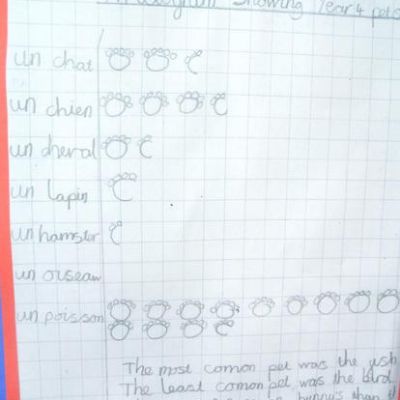 Showing Year 4 pets
un chat
un chien
un cheval
un lapin
un hamster
un oiseau
un poisson
The most comon pet was the fish
The least comon pet was the bird.
bunny's than